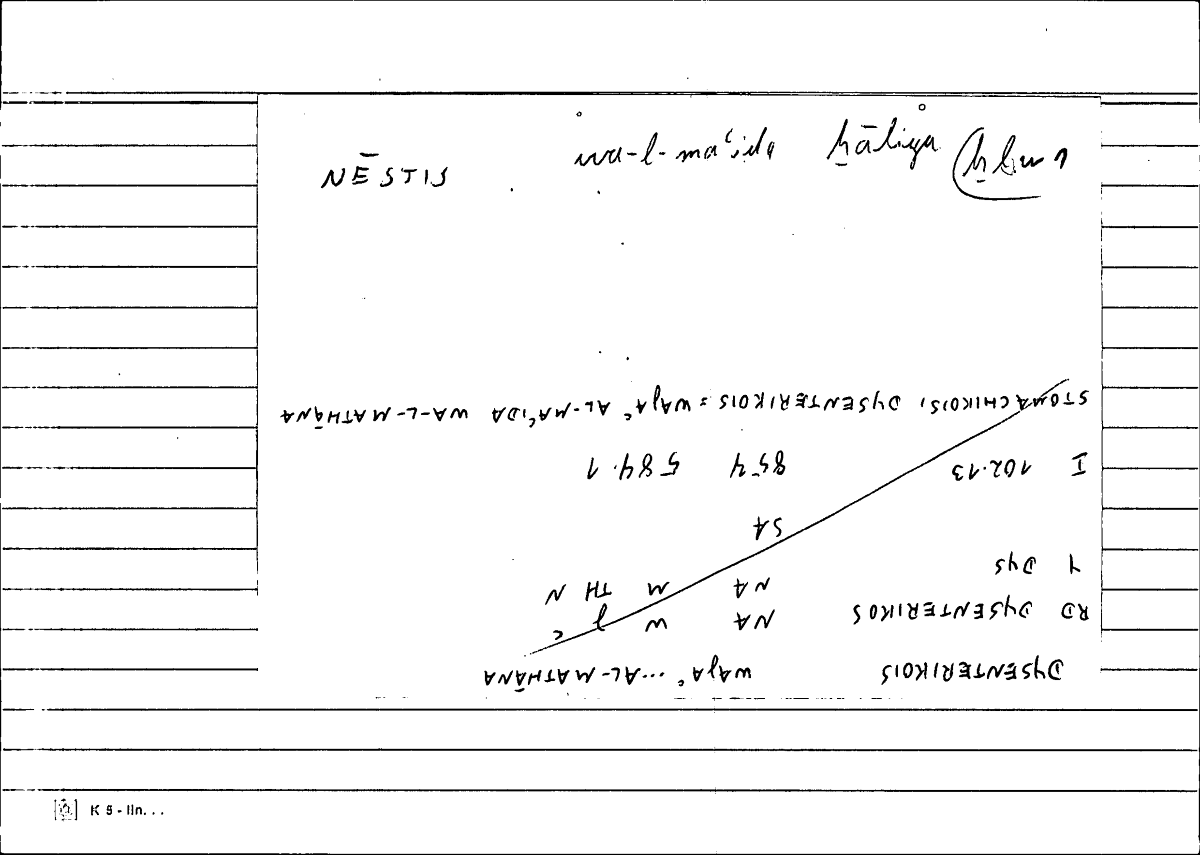 NĒSTIS wa-l-maʿida ḫāliya
STOMACHIKOIS, DYSENTERIKOIS = WAJAʿ AL-MAʿIDA WA-L-MATHĀNA
I 102.13 854 584.1
SA
Y DYS NA M TH N
RD DYSENTERIKOS NA W J ʿ
DYSENTERIKOIS WAJAʿ...AL-MATHĀNA
K 5 - lln...